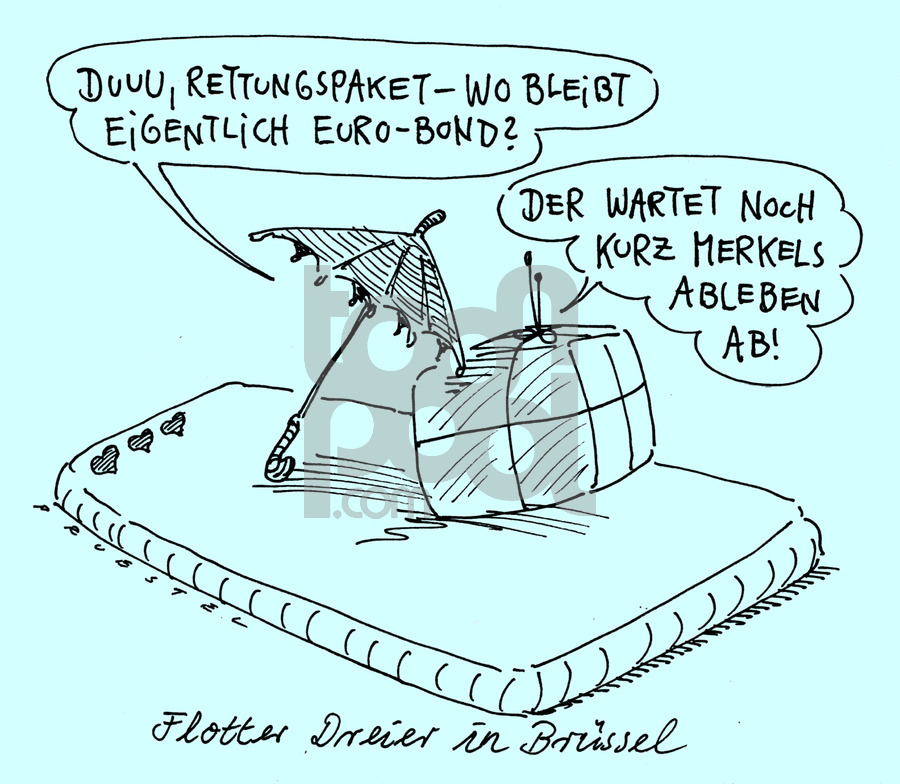 DUUU, RETTUNGSPAKET – WO BLEIBT
EIGENTLICH EURO-BOND?
DER WARTET NOCH
KURZ MERKELS
ABLEBEN
AB!
toonpool
.com
Flotter Dreier in Brüssel